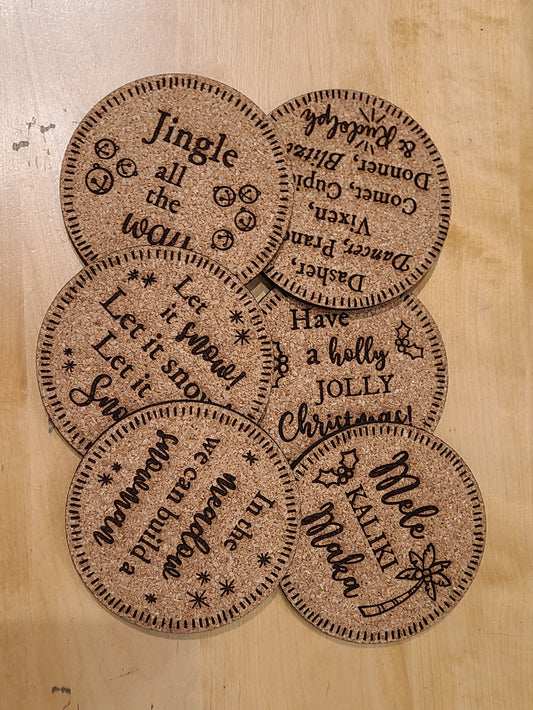 Jingle
all
the
way
Dasher,
Dancer, Pranc
Vixen,
Comet, Cupi
Donner, Blitze
& Rudolph
Let
it snow!
Let it snow
Let it
Sno
Have
a holly
JOLLY
Christmas!
In the
meadow
we can build a
snowman
Mele
KALIKI
Maka